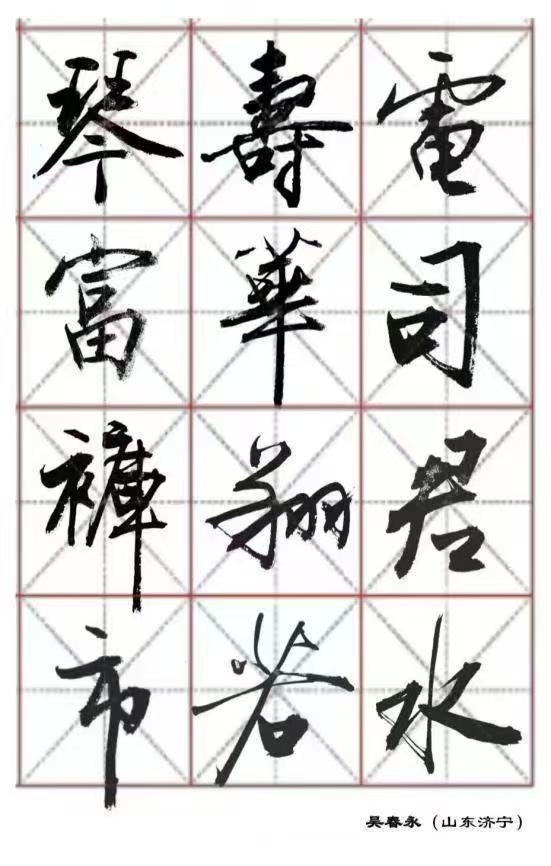 電司君水
壽華翔若
琴富褲市
吴春永（山东济宁）